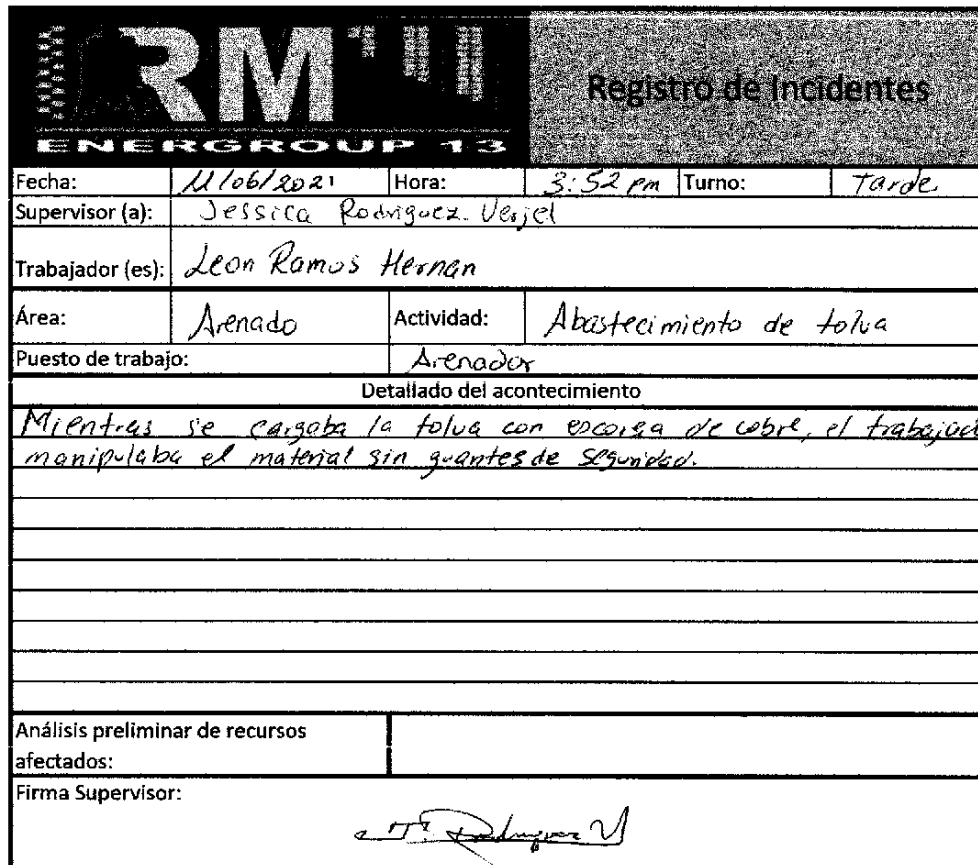 RM
ENERGROUP 13
Registro de Incidentes
Fecha: 11/06/2021 Hora: 3:52 pm Turno: Tarde
Supervisor (a): Jessica Rodriguez Verjel
Trabajador (es): Leon Ramos Hernan
Área: Arenado Actividad: Abastecimiento de tolva
Puesto de trabajo: Arenador
Detallado del acontecimiento
Mientras se cargaba la tolva con escoria de cobre, el trabajad
manipulaba el material sin guantes de seguridad.
Análisis preliminar de recursos
afectados:
Firma Supervisor:
J. Rodriguez V